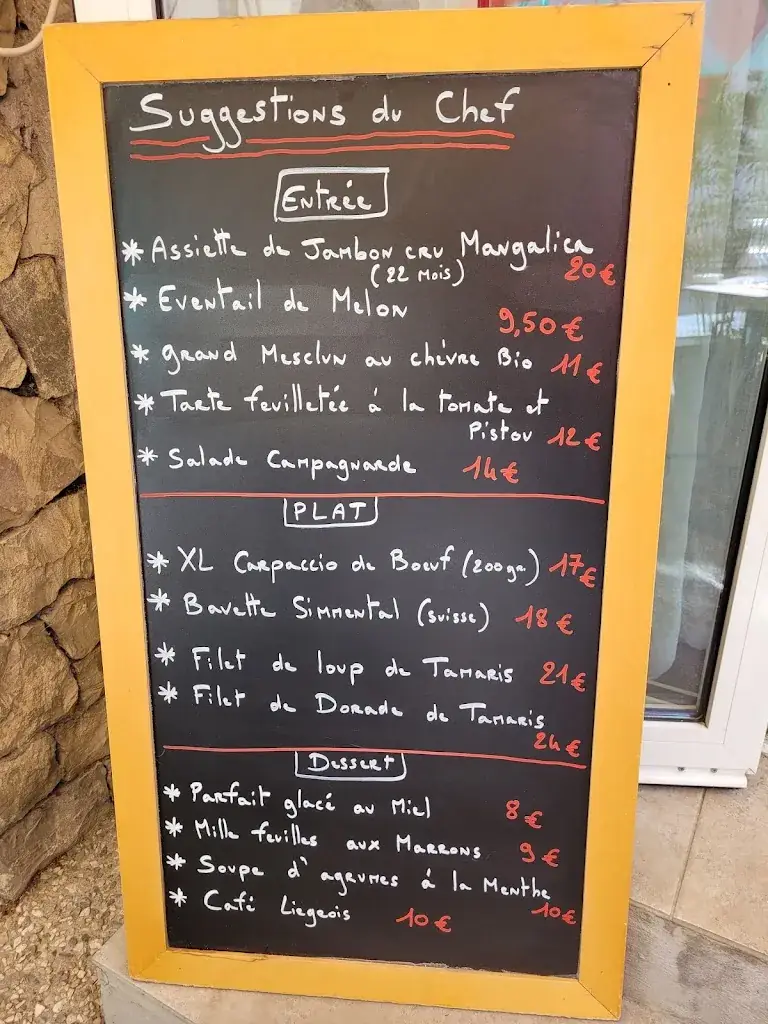 Suggestions du Chef
Entrée
* Assiette de Jambon cru Mangalica
(22 mois) 20€
* Eventail de Melon
9,50€
* Grand Mesclun au chèvre Bio 11€
* Tarte feuilletée à la tomate et
Pistou 12€
* Salade Campagnarde 14€
PLAT
* XL Carpaccio de Boeuf (200gr) 17€
* Bavette Simmental (suisse) 18€
* Filet de loup de Tamaris 21€
* Filet de Dorade de Tamaris
24€
Dessert
* Parfait glacé au Miel 8€
* Mille feuilles aux Marrons 9€
* Soupe d'agrumes à la Menthe
10€
* Café Liegeois 10€